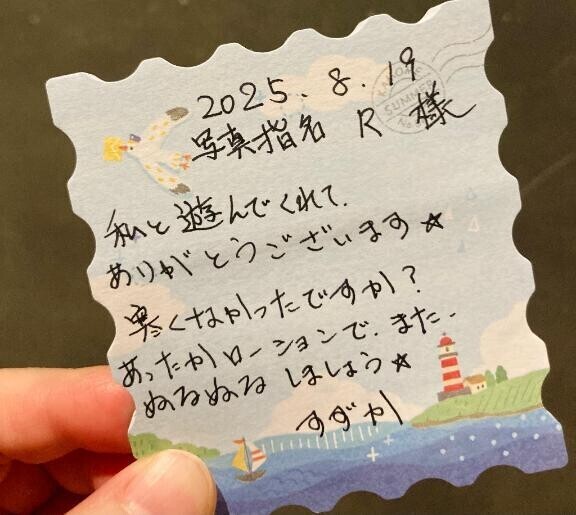 2025.8.19
写真指名 R 様
SUMMER
私と遊んでくれて.
ありがとうございます☆
寒くなかったですか?
あったかローションで.また.
ぬるぬるしましょう☆
すずか